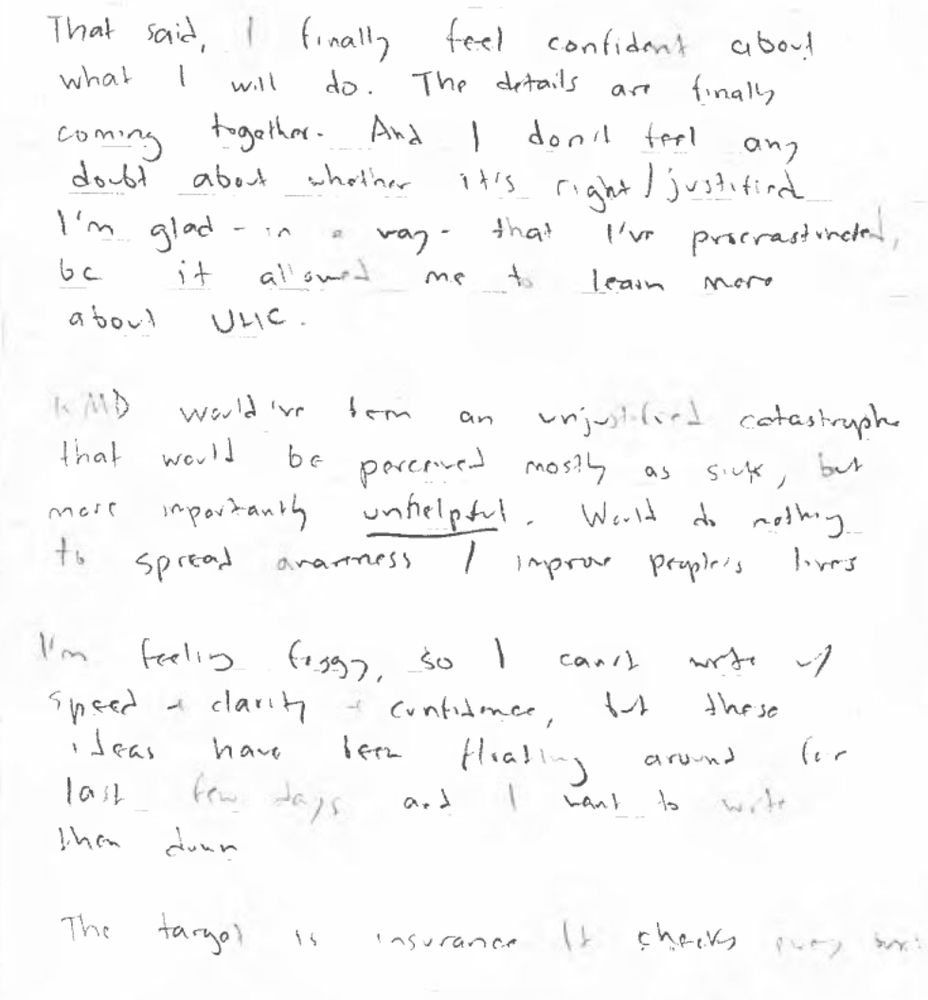 That said, I finally feel confident about
what I will do. The details are finally
coming together. And I don't feel any
doubt about whether it's right / justified
I'm glad - in a way - that I've procrastinated,
bc it allowed me to learn more
about UHC.
KMD would've been an unjustified catastrophe
that would be perceived mostly as sick, but
more importantly unhelpful. Would do nothing
to spread awareness / improve people's lives
I'm feeling foggy, so I can't write w/
speed + clarity + confidence, but these
ideas have been floating around for
last few days and I want to write
them down
The target is insurance It checks every box